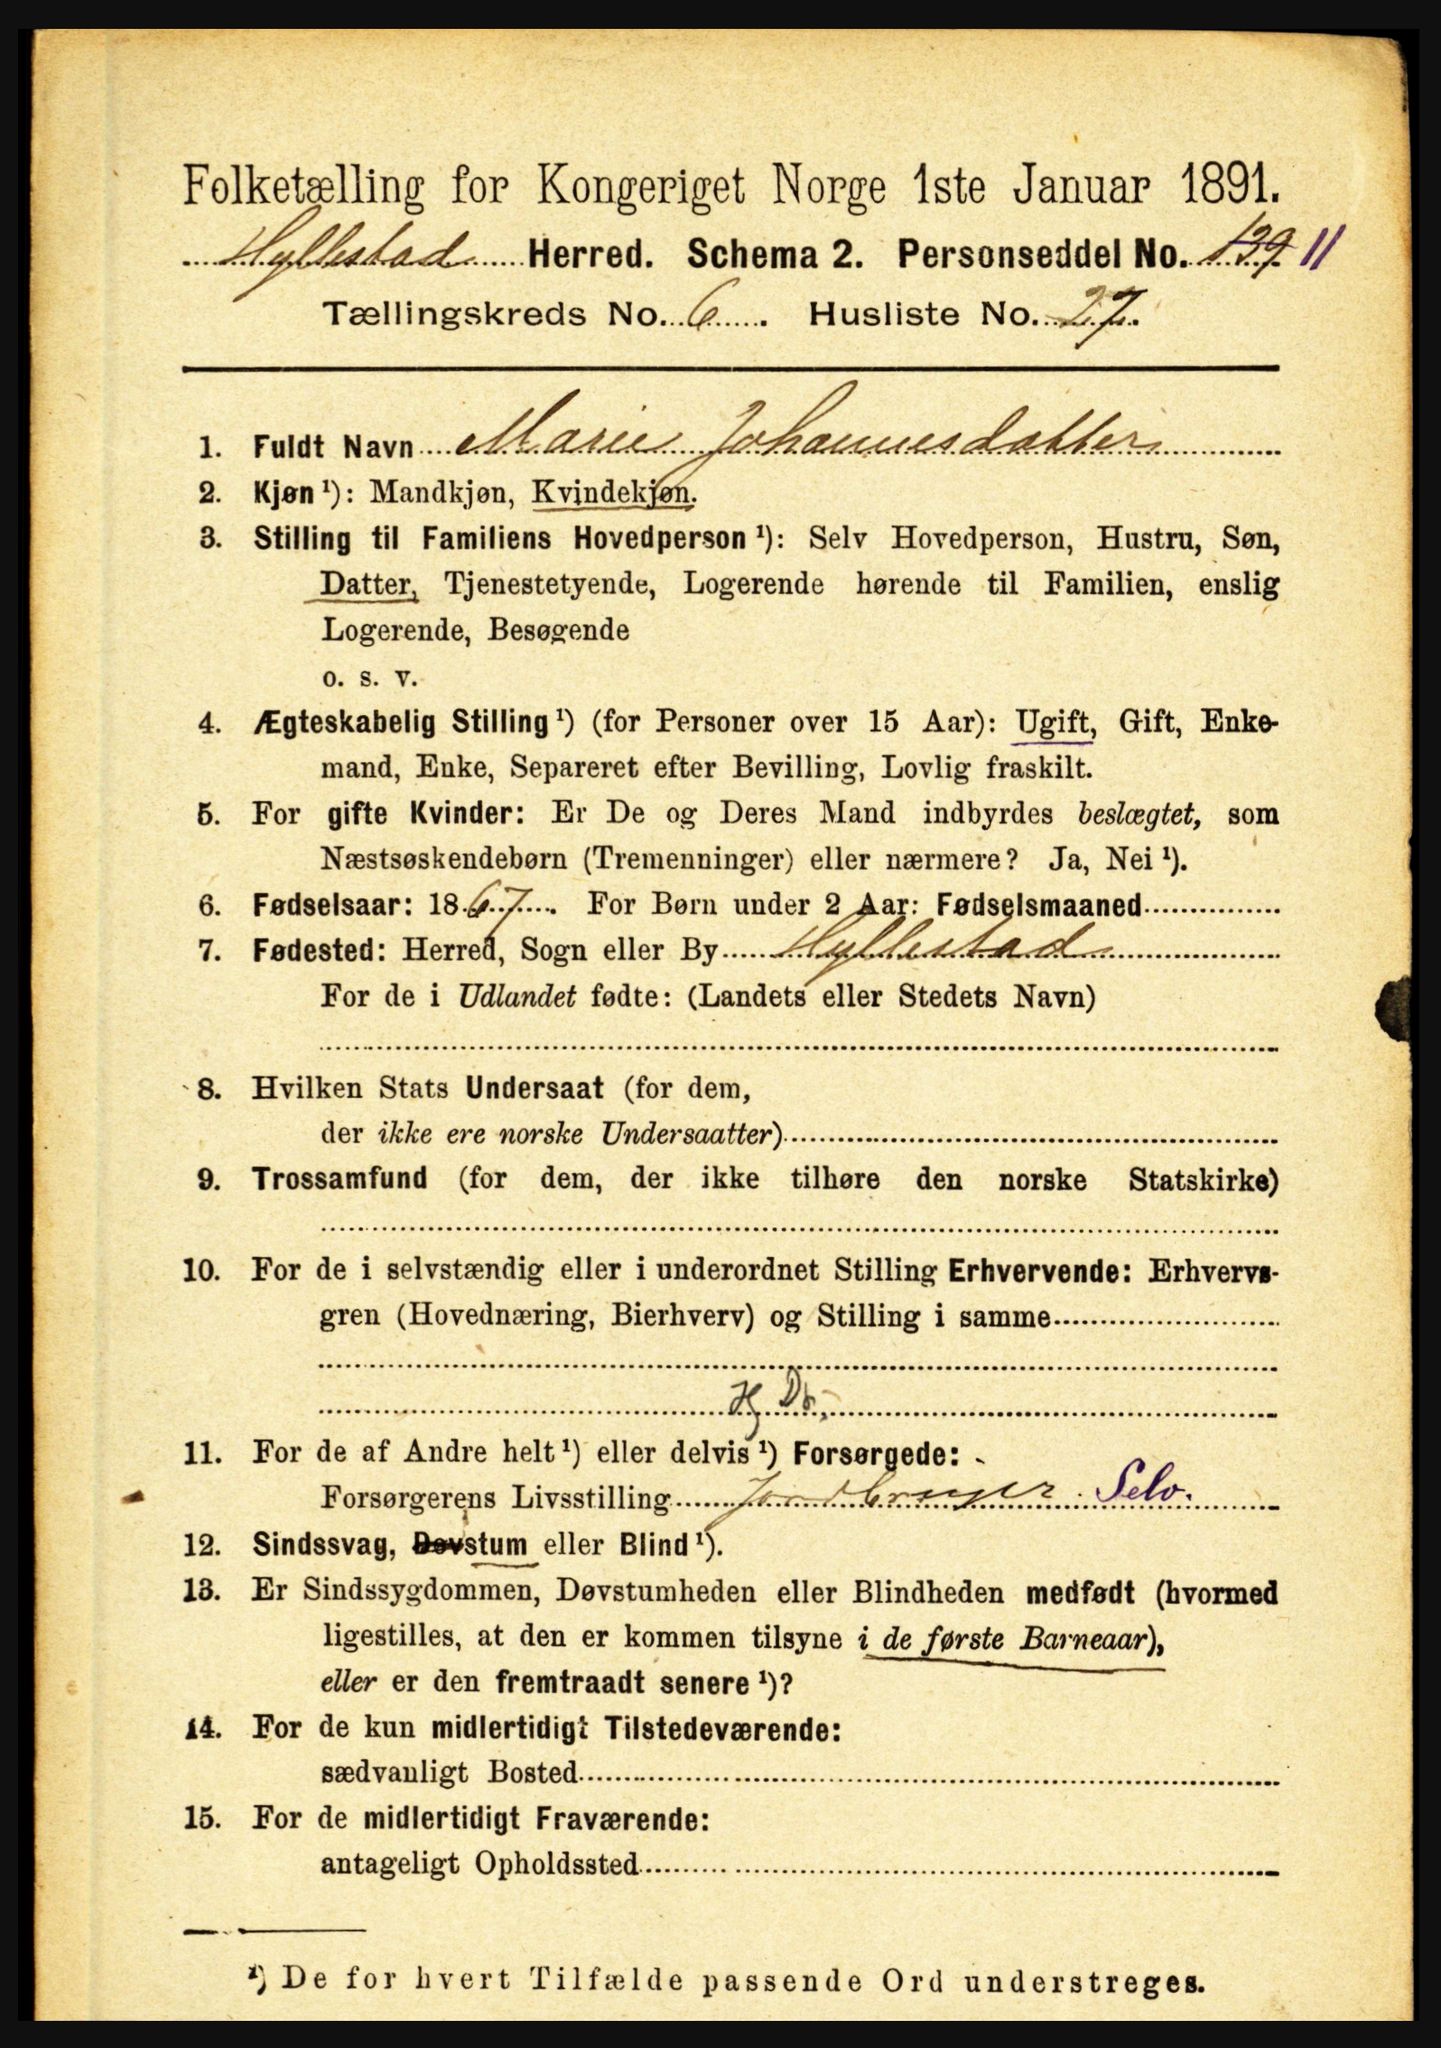 Folketælling for Kongeriget Norge 1ste Januar 1891.
Hyllestad Herred. Schema 2. Personseddel No. 139 11
Tællingskreds No. 6. Husliste No. 27.
1. Fuldt Navn Marie Johannesdatter
2. Kjøn ¹): Mandkjøn, Kvindekjøn.
3. Stilling til Familiens Hovedperson ¹): Selv Hovedperson, Hustru, Søn,
Datter, Tjenestetyende, Logerende hørende til Familien, enslig
Logerende, Besøgende
o. s. v.
4. Ægteskabelig Stilling ¹) (for Personer over 15 Aar): Ugift, Gift, Enke-
mand, Enke, Separeret efter Bevilling, Lovlig fraskilt.
5. For gifte Kvinder: Er De og Deres Mand indbyrdes beslægtet, som
Næstsøskendebørn (Tremenninger) eller nærmere? Ja, Nei ¹).
6. Fødselsaar: 1867. For Børn under 2 Aar: Fødselsmaaned
7. Fødested: Herred, Sogn eller By Hyllestad
For de i Udlandet fødte: (Landets eller Stedets Navn)
8. Hvilken Stats Undersaat (for dem,
der ikke ere norske Undersaatter)
9. Trossamfund (for dem, der ikke tilhøre den norske Statskirke)
10. For de i selvstændig eller i underordnet Stilling Erhvervende: Erhvervs-
gren (Hovednæring, Bierhverv) og Stilling i samme
Hj Dr,
11. For de af Andre helt ¹) eller delvis ¹) Forsørgede:
Forsørgerens Livsstilling Jordbruger Selv.
12. Sindssvag, Døvstum eller Blind ¹).
13. Er Sindssygdommen, Døvstumheden eller Blindheden medfødt (hvormed
ligestilles, at den er kommen tilsyne i de første Barneaar),
eller er den fremtraadt senere ¹)?
14. For de kun midlertidigt Tilstedeværende:
sædvanligt Bosted
15. For de midlertidigt Fraværende:
antageligt Opholdssted
¹) De for hvert Tilfælde passende Ord understreges.